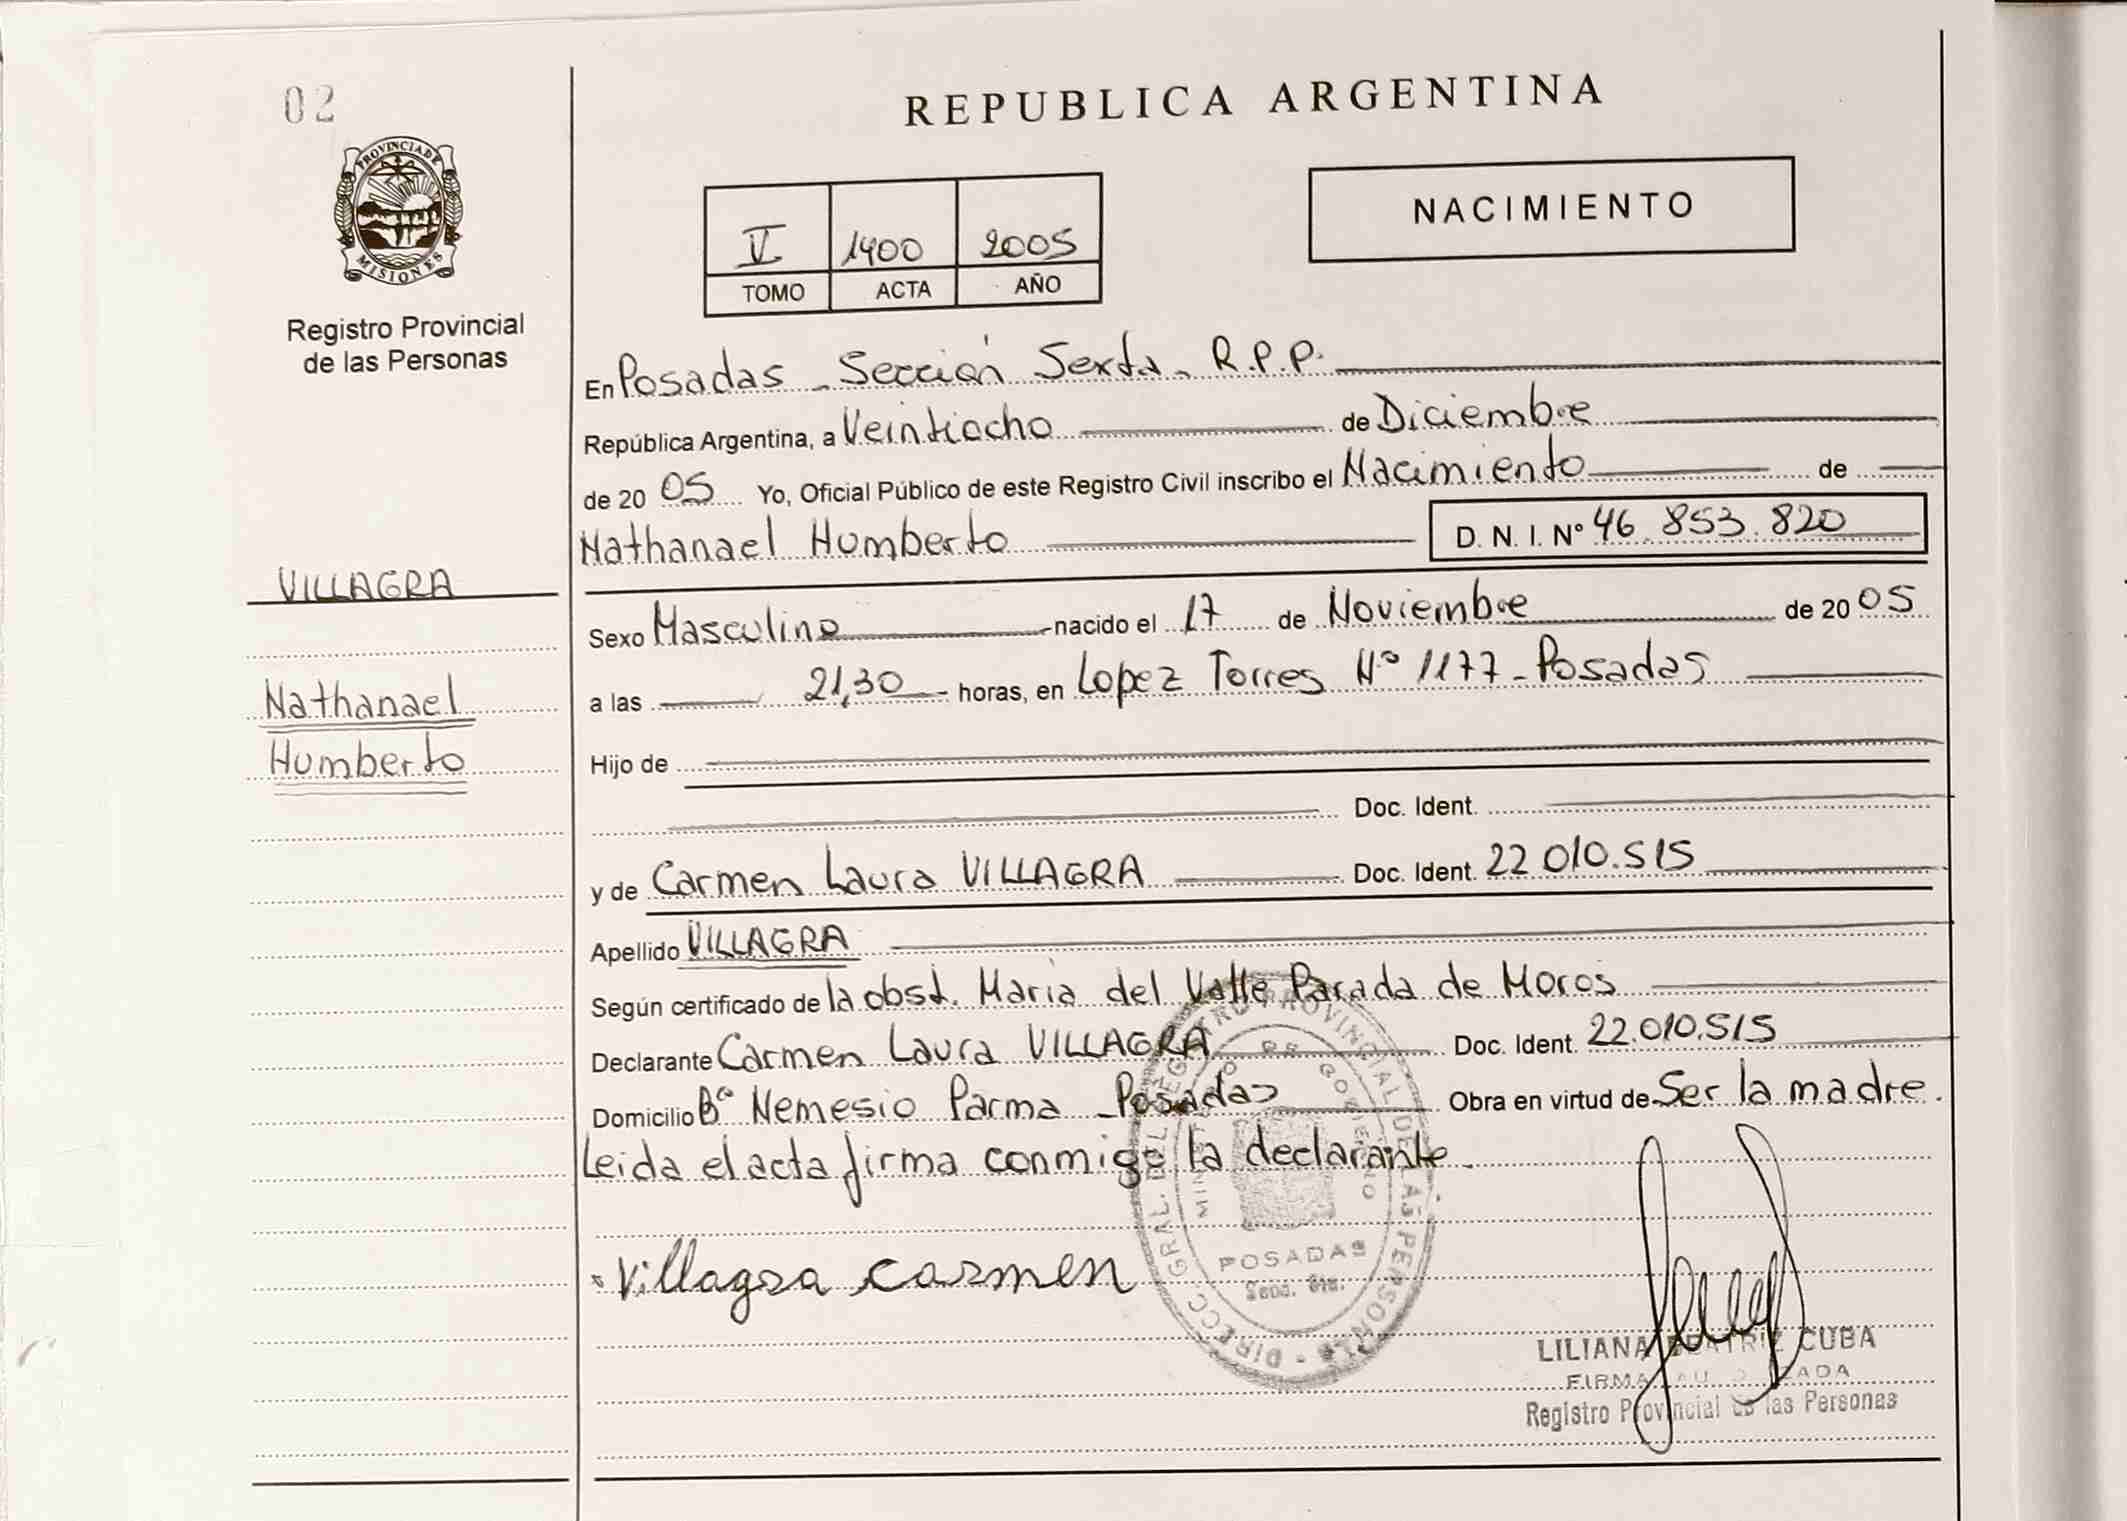 02
PROVINCIA DE
MISIONES
Registro Provincial
de las Personas
REPUBLICA ARGENTINA
V 1400 2005
TOMO ACTA AÑO
NACIMIENTO
En Posadas - Sección Sexta - R.P.P.
República Argentina, a Veintiocho de Diciembre
de 20 05 Yo, Oficial Público de este Registro Civil inscribo el Nacimiento de
Nathanael Humberto D. N. I. Nº 46.853.820
VILLAGRA
Sexo Masculino nacido el 17 de Noviembre de 20 05
Nathanael
a las 21,30 horas, en Lopez Torres Nº 1177 - Posadas
Humberto
Hijo de
Doc. Ident.
y de Carmen Laura VILLAGRA Doc. Ident. 22 010.515
Apellido VILLAGRA
Según certificado de la obst. Maria del Valle Parada de Moros
Declarante Carmen Laura VILLAGRA Doc. Ident. 22.010.515
Domicilio Bº Nemesio Parma - Posadas Obra en virtud de Ser la madre.
Leida el acta firma conmigo la declarante.
Villagra Carmen
DIRECC. GRAL. DEL REGISTRO PROVINCIAL DE LAS PERSONAS
GOBIERNO
POSADAS
LILIANA BEATRIZ CUBA
FIRMA AUTORIZADA
Registro Provincial de las Personas